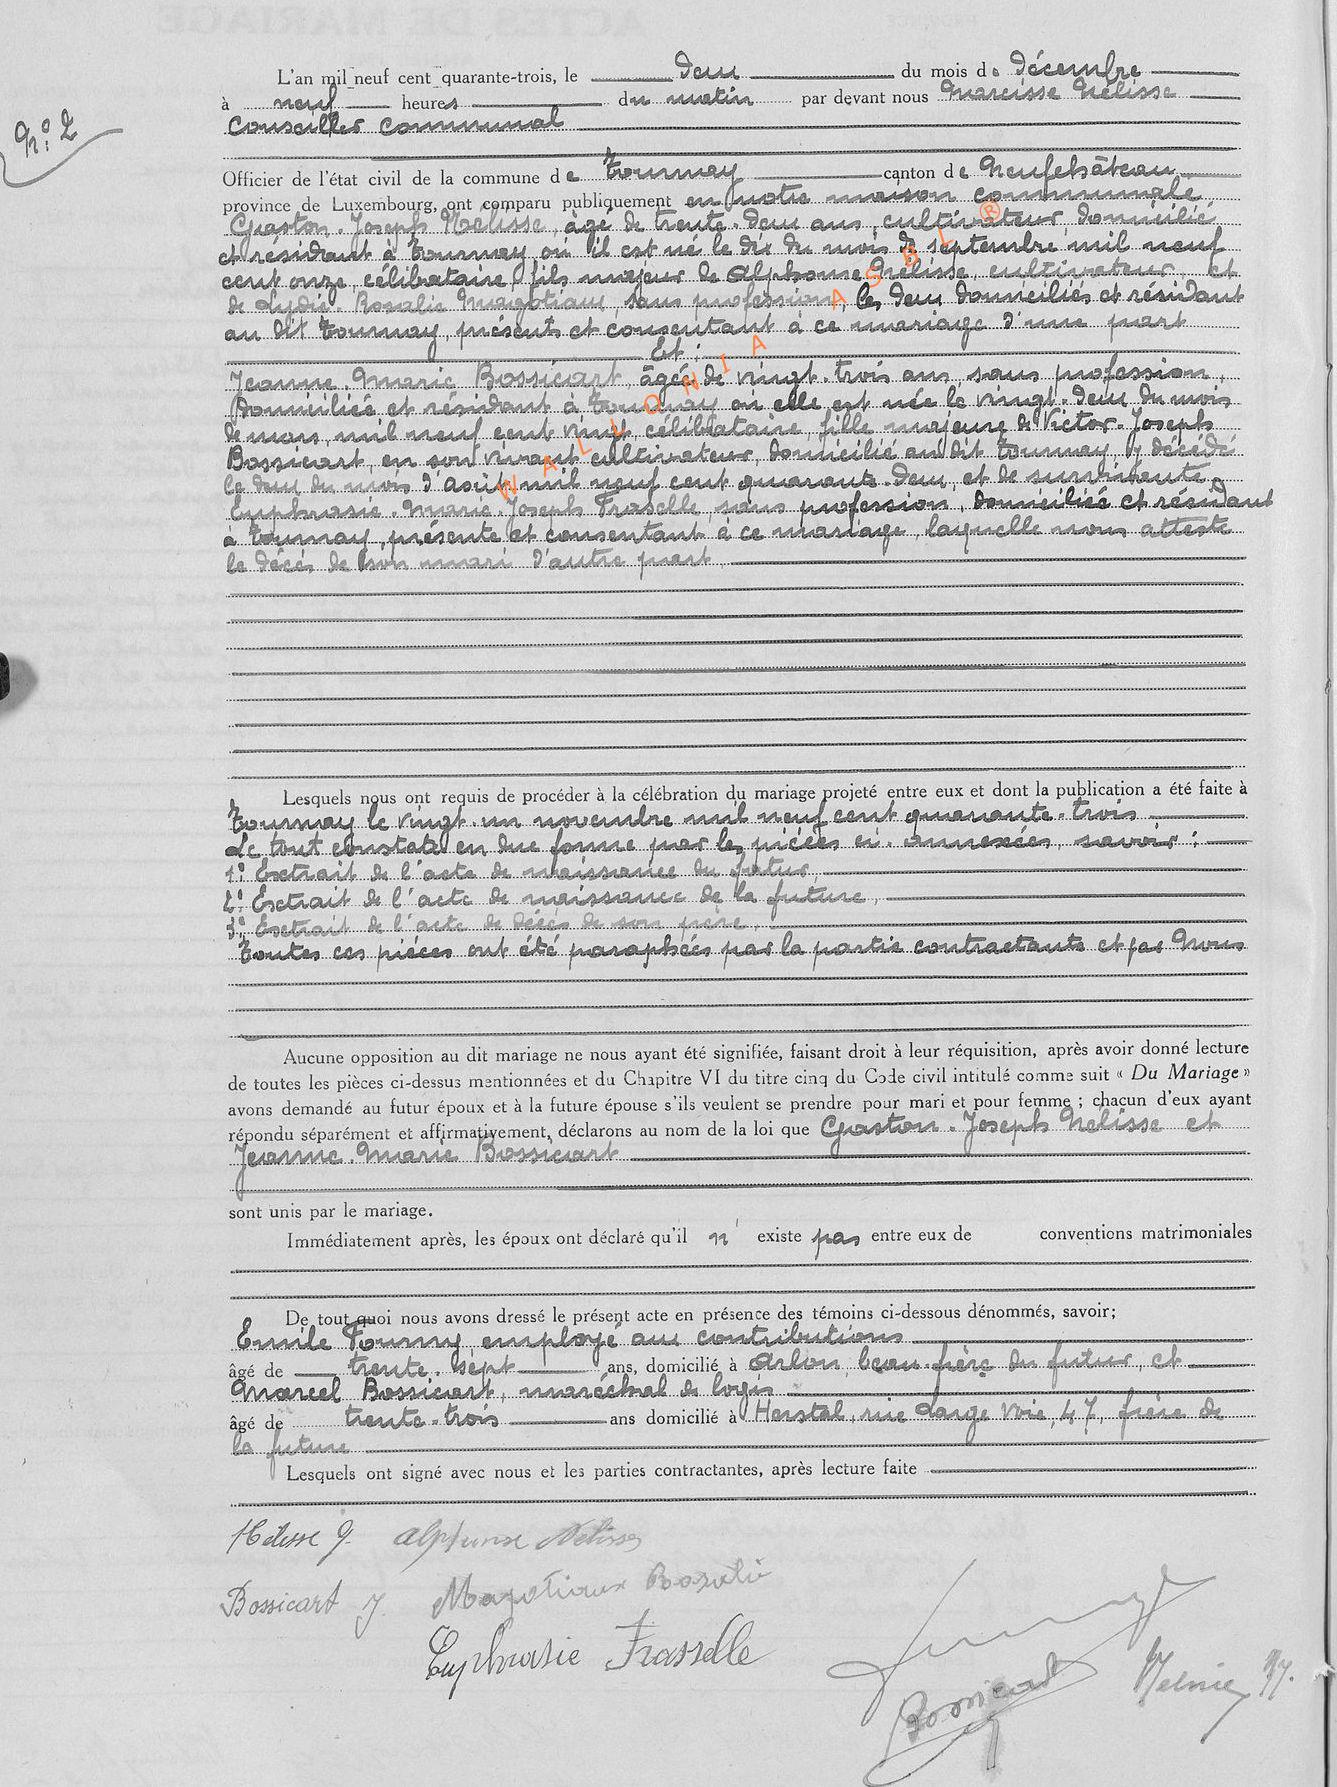 N°: 2
L'an mil neuf cent quarante-trois, le deux du mois de décembre
à neuf heures du matin par devant nous Narcisse Nélisse
Conseiller Communal
Officier de l'état civil de la commune de Tournay canton de Neufchâteau
province de Luxembourg, ont comparu publiquement en notre maison communale
Gaston-Joseph Nelisse, âgé de trente-deux ans, cultivateur, domicilié
et résidant à Tournay où il est né le dix du mois de septembre mil neuf
cent onze, célibataire, fils majeur de Alphonse Nélisse, cultivateur, et
de Lydie-Rosalie Magotiaux, sans profession, les deux domiciliés et résidant
au dit Tournay, présents et consentant à ce mariage d'une part
Et :
Jeanne-Marie Bossicart, âgée de vingt-trois ans, sans profession,
domiciliée et résidant à Tournay où elle est née le vingt-deux du mois
de mars, mil neuf cent vingt, célibataire, fille majeure de Victor-Joseph
Bossicart, en son vivant cultivateur, domicilié au dit Tournay, y décédé
le deux du mois d'août mil neuf cent quarante-deux, et de survivante
Euphrasie-Marie-Joseph Fraselle, sans profession, domiciliée et résidant
à Tournay, présente et consentant à ce mariage, laquelle nous atteste
le décès de son mari d'autre part.
WALLONIA ASBL ®
Lesquels nous ont requis de procéder à la célébration du mariage projeté entre eux et dont la publication a été faite à
Tournay le vingt-un novembre mil neuf cent quarante-trois
Le tout constaté en due forme par les piéces ci-annexées, savoir :
1° Extrait de l'acte de naissance du futur,
2° Extrait de l'acte de naissance de la future,
3° Extrait de l'acte de décès de son père.
Toutes ces piéces ont été paraphées par la partie contractante et par Nous
Aucune opposition au dit mariage ne nous ayant été signifiée, faisant droit à leur réquisition, après avoir donné lecture
de toutes les pièces ci-dessus mentionnées et du Chapitre VI du titre cinq du Code civil intitulé comme suit « Du Mariage »
avons demandé au futur époux et à la future épouse s'ils veulent se prendre pour mari et pour femme ; chacun d'eux ayant
répondu séparément et affirmativement, déclarons au nom de la loi que Gaston-Joseph Nelisse et
Jeanne-Marie Bossicart
sont unis par le mariage.
Immédiatement après, les époux ont déclaré qu'il n' existe pas entre eux de conventions matrimoniales
De tout quoi nous avons dressé le présent acte en présence des témoins ci-dessous dénommés, savoir;
Emile Fourny, employé aux contributions
âgé de trente-sept ans, domicilié à Arlon, beau-frère du futur, et
Marcel Bossicart, maréchal de logis
âgé de trente-trois ans domicilié à Herstal, rue Large Voie, 47, frère de
la future
Lesquels ont signé avec nous et les parties contractantes, après lecture faite
Nelisse G. Alphonse Nelisse
Bossicart J. Magotiaux Rosalie
Euphrasie Frasselle
Bossicart